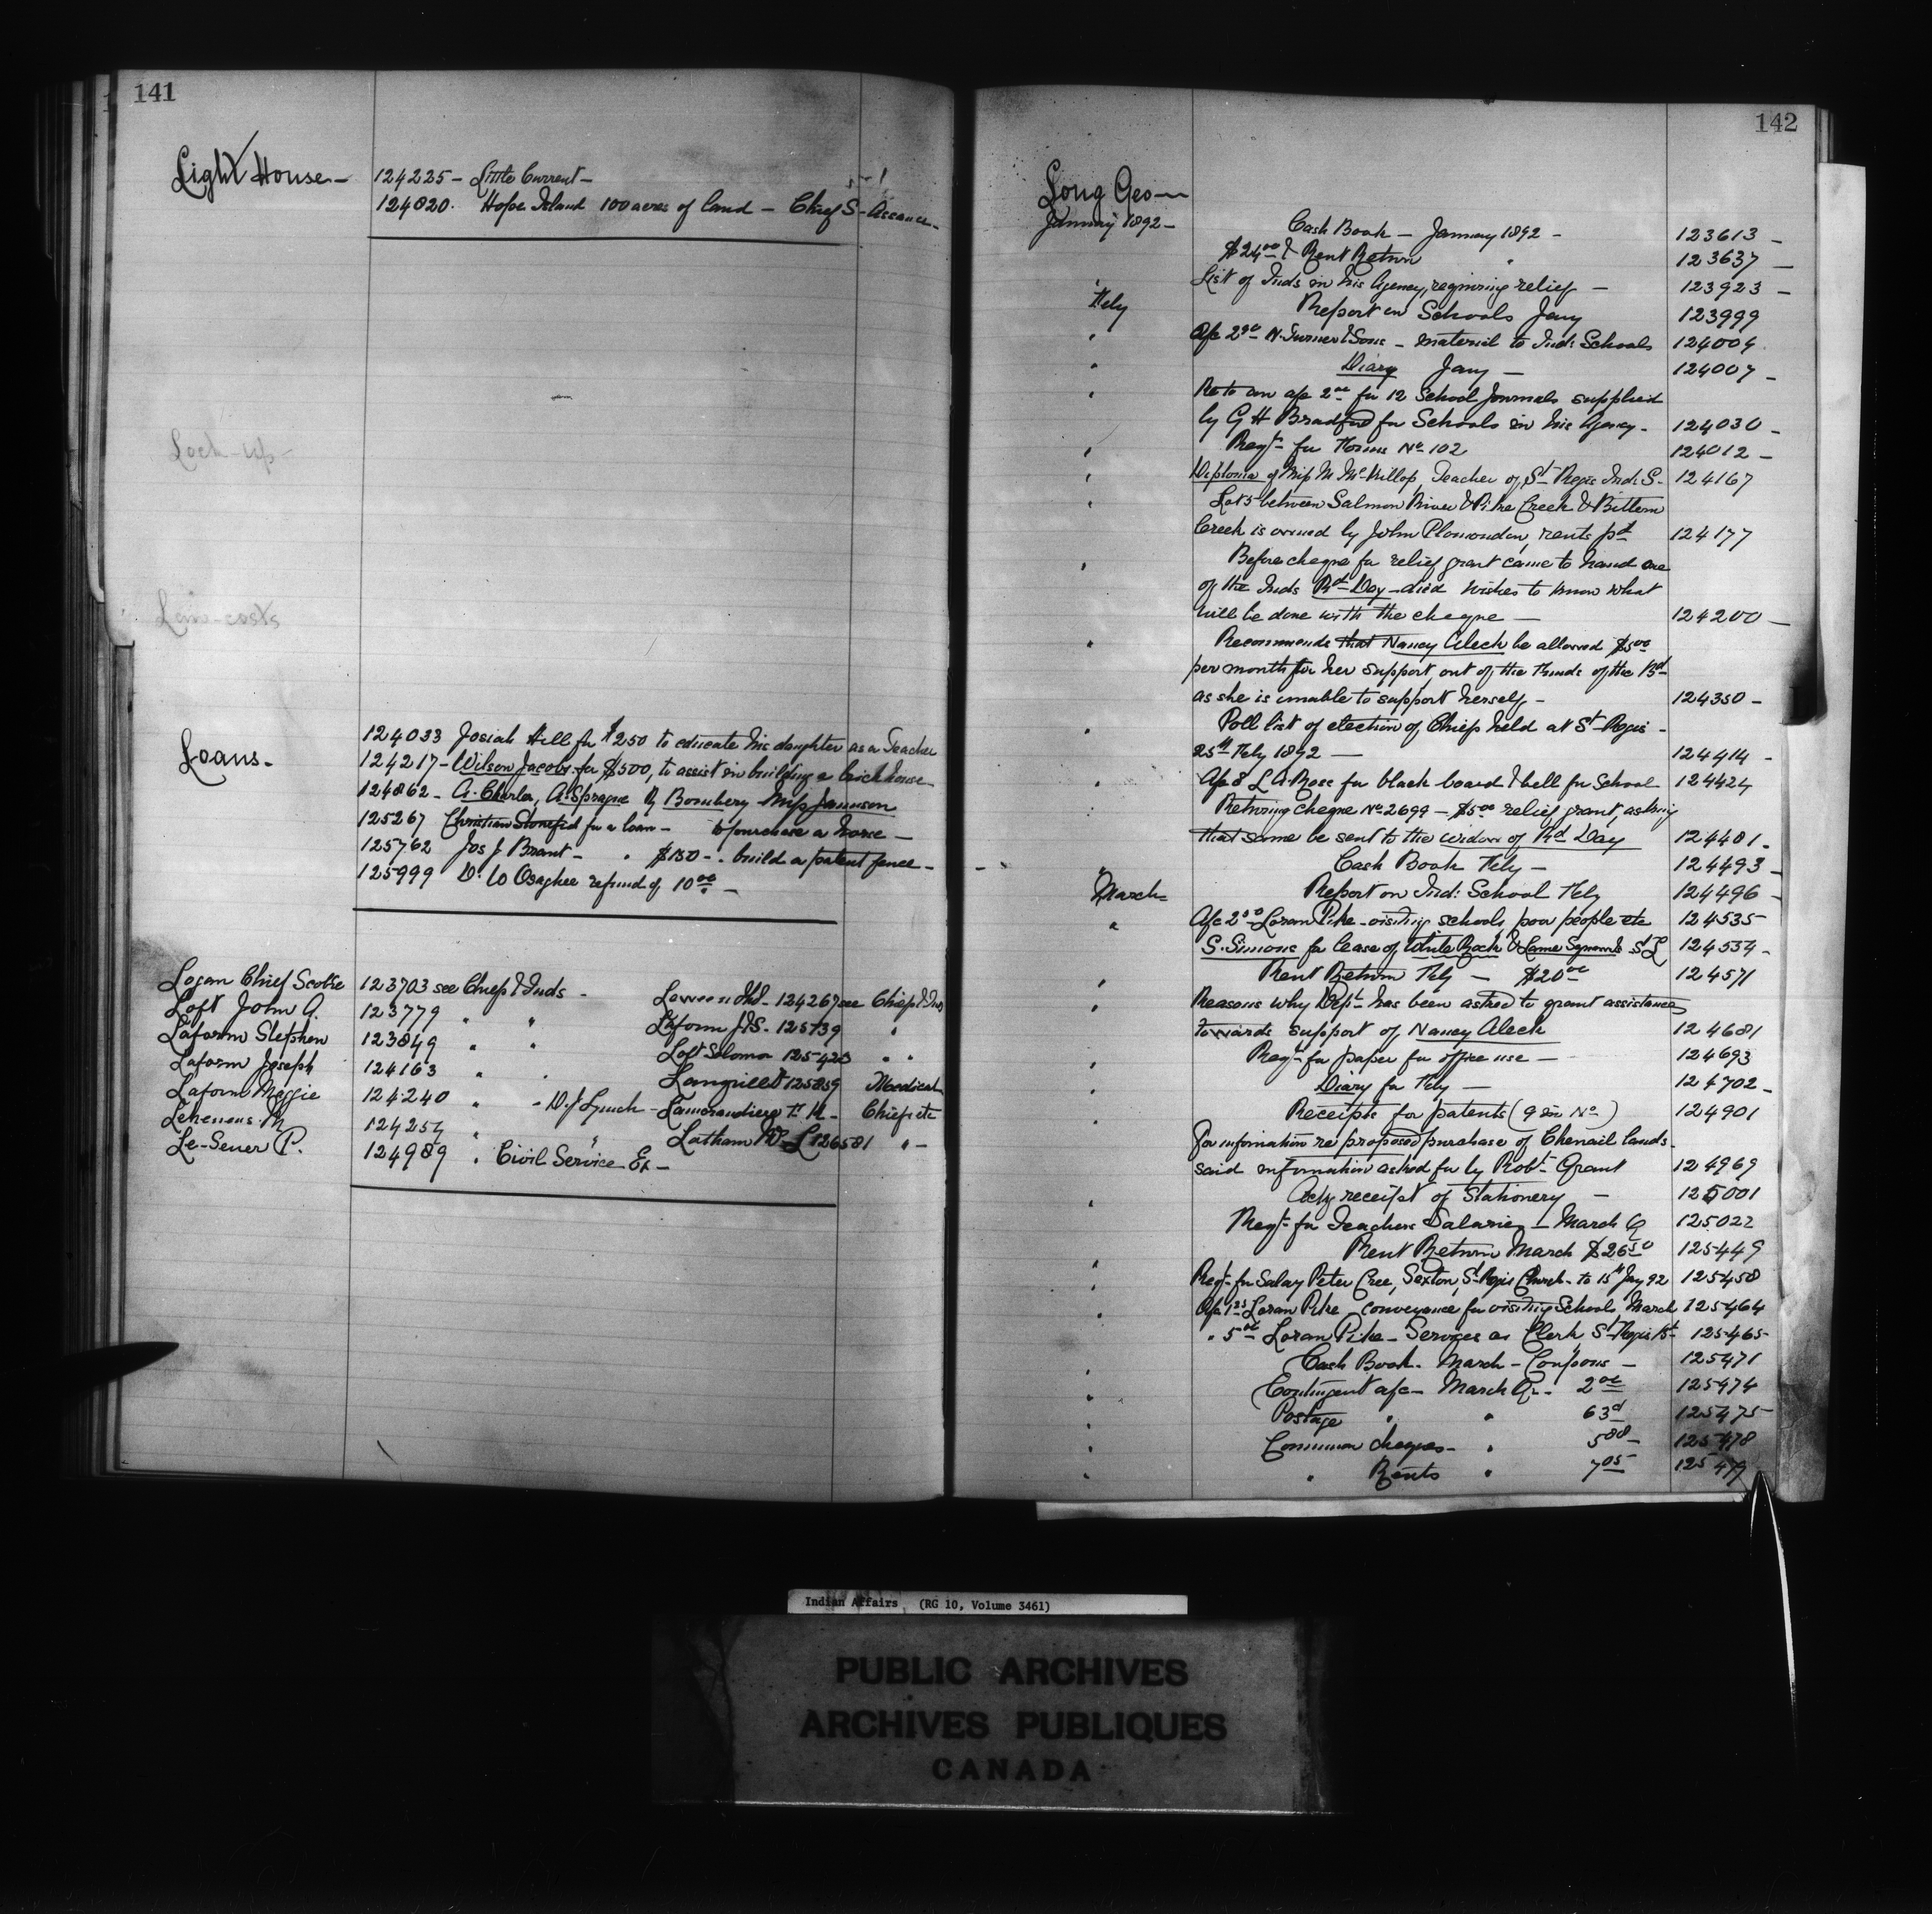 141
Light House - 124225 - Little Current -
124020. Hope Island 100 acres of land - Chief S - Assance -
Lock-up -
Law-costs
Loans - 124033 Josiah Hill for $250 to educate his daughter as a Teacher
124217 - Wilson Jacobs for $500, to assist in building a brick house -
124862 - A. Charles, A. Sprague Bombery Miss Jamieson
125267 Christian Stonefid for a loan - to purchase a horse -
125762 Jos J Brant - " $150 - " build a patent fence -
125999 D. W Osaghee refund of 10 00 -
Logan Chief Scobie 123703 see Chiefs & Inds - 124267 see Chiefs & Inds
Loft John A. 123779 " " Laform J.S. 125739 "
Laform Stephen 123849 " " Loft Solomon 125423 " "
Laform Joseph 124163 " " 125859 Medical
Laform Maggie 124240 " - W. J Lynch - Lamorandiere Chiefs etc
124254 " " Latham 126581 " -
Le-Sueur P. 124989 " Civil Service Ex -
142
Long Geo -
January 1892 -
Cash Book - January 1892 - 123613 -
$24 00 & Rent Return " 123637 -
List of Inds in his Agency, requiring relief - 123923 -
Feby Report on Schools Jany 123999
" a/c 2 90 N. Turner & Sons - material to Ind: Schools 124004
" Diary Jany - 124007 -
" Re to an a/c 2 00 for 12 School Journals supplied
by G H Bradford for Schools in his Agency - 124030 -
" Reqt- for Forms No 102 124012 -
" Diploma of Miss M McKillop, Teacher of St Regis Ind: S - 124167
" Lots between Salmon River & Pike Creek & Bittern
Creek is owned by John Plamondon, rents pd 124177
" Before cheque for relief grant came to hand one
of the Inds Rd Day - died wishes to know what
will be done with the cheque - 124200 -
" Recommends that Nancy Aleck be allowed $5 00
per month for her support, out of the Funds of the Bd
as she is unable to support herself - 124350 -
" Poll list of election of Chiefs held at St Regis -
25th Feby 1892 - 124414 -
" A/c 8 L. A. Ross for black board & bell for School 124424
" Returning cheque No 2699 - $5 00 relief grant, asking
that same be sent to the widow of Rd Day 124481 -
Cash Book Feby - 124493 -
March - Report on Ind: School Feby 124496 -
" A/c 2 50 Loran Pike - visiting schools, poor people etc 124535
S. Simons for lease of White Rock & St L 124534 -
" Rent Return Feby - $20 00 124571
" Reasons why Dept has been asked to grant assistance
towards support of Nancy Aleck 124681
" Reqt- for paper for office use - 124693
" Diary for Feby - 124702 -
" Receipts for patents (9 in No) 124901
For information re proposed purchase of Chenail lands -
said information asked for by Robt Grant 124969
" Ackg receipt of Stationery - 125001
Reqt- for Teachers Salaries - March Q 125022
" Rent Return March $26 50 125449
" Reqt- for Salary Peter Cree, Sexton, St Regis Church - to 15th Jany 92 125458
" A/c 1 25 Loran Pike - conveyance for visiting Schools March 125464
" 5 00 Loran Pike - Services as Clerk St Regis Bd 125465
" Cash Book - March - Coupons - 125471
" Contingent a/c - March Qr - 2 00 125474
" Postage " " 63 125475
" Common cheques - " 5 88 - 125478
" " Rents " 7 05 125479
Indian Affairs (RG 10, Volume 3461)
PUBLIC ARCHIVES
ARCHIVES PUBLIQUES
CANADA